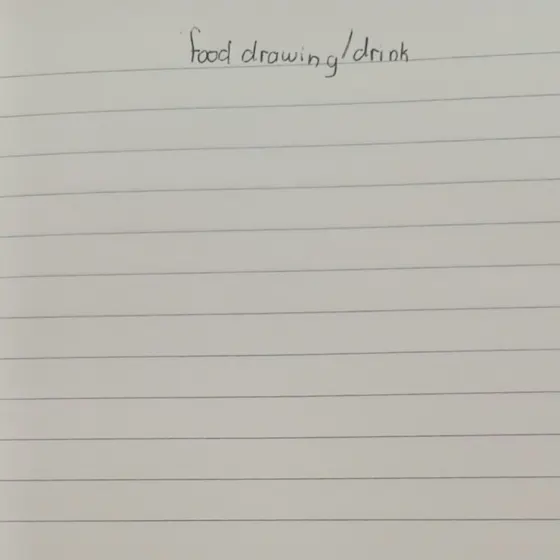 food drawing/drink